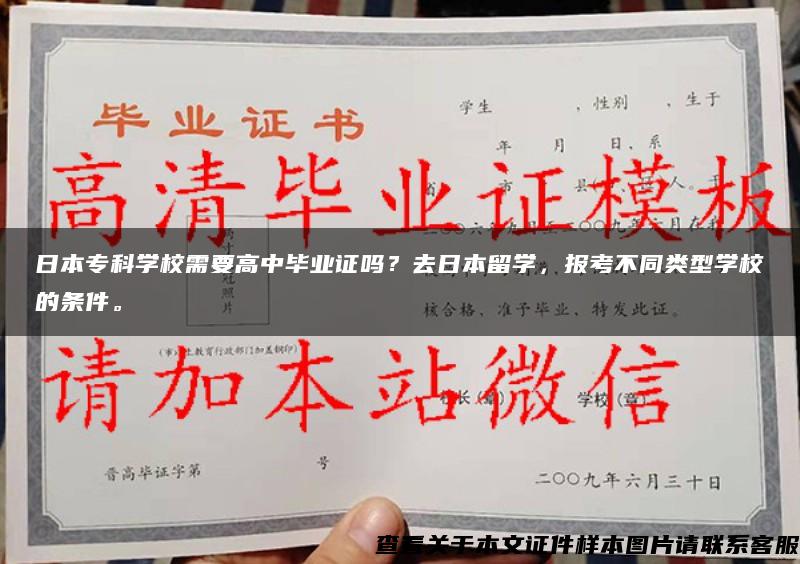 毕业证书
学生　　　，性别　　，生于
年　月　日，系
高清毕业证模板
二〇〇六年九月至二〇〇九年六月在
日本专科学校需要高中毕业证吗？去日本留学，报考不同类型学校
的条件。
冠照片
核合格，准予毕业，特发此证。
（市）以上教育行政部门加盖钢印）
请加本站微信
校长（章）
学校（章）
晋高毕证字第　　　号
二〇〇九年六月三十日
查看关于本文证件样本图片请联系客服